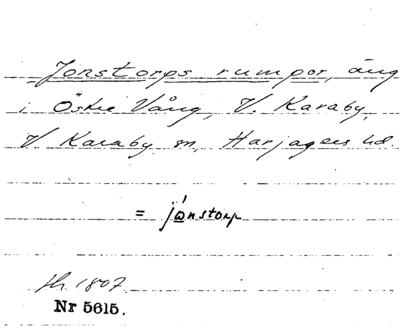 Jonstorps rumpor, äng
i Östre Vång, V. Karaby,
V Karaby sn, Harjagers hd.
= jọnstorp
sk. 1807.
Nr 5615.